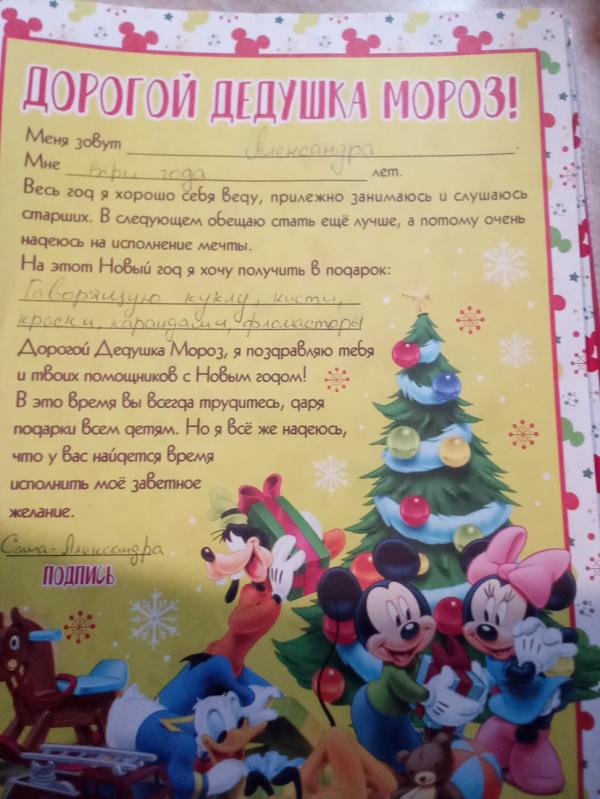 ДОРОГОЙ ДЕДУШКА МОРОЗ!
Меня зовут Александра.
Мне три года лет.
Весь год я хорошо себя веду, прилежно занимаюсь и слушаюсь
старших. В следующем обещаю стать ещё лучше, а потому очень
надеюсь на исполнение мечты.
На этот Новый год я хочу получить в подарок:
Гаворящую куклу, кисти,
краски, карандаши, фломастары
Дорогой Дедушка Мороз, я поздравляю тебя
и твоих помощников с Новым годом!
В это время вы всегда трудитесь, даря
подарки всем детям. Но я всё же надеюсь,
что у вас найдется время
исполнить моё заветное
желание.
Саша-Александра
ПОДПИСЬ